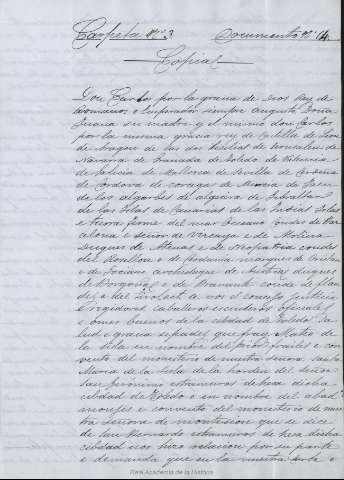 Carpeta nº 3. Documento nº 14.
Copias
Don Carlos por la gracia de Dios Rey de
Romanos e Emperador siempre augusto Doña
Juana su madre y el mismo don Carlos
por la misma gracia rey de Castilla de Leon
de Aragon de las dos Sicilias de Jerusalen de
Navarra de Granada de Toledo de Valencia
de Galicia de Mallorca de Sevilla de Cerdeña
de Cordova de corcega de Murcia de Jaen
de los algarbes de algecira de Gibraltar
de las Islas de Canarias de las Indias Islas
e tierra firme del mar Oceano condes de Bar
celona e señores de Vizcaya e de Molina
Duques de Atenas e de Neopatria condes
del Rosellon e de Cerdania marqueses de Oristan
e de Gociano archiduques de Austria duques
de Borgoña e de Bravante conde de Flan
des e del Tirol
corregidores caballeros escuderos oficiales
e omes buenos de la cibdad de Toledo Sa
lud e gracia sepades que fray Mateo de
la Sisla en nombre del prior frailes e con
vento del monesterio de nuestra señora santa
Maria de la Sisla de la horden del señor
San Geronimo extramuros de hesa dicha
cibdad de Toledo e en nombre del abad
monjes e convento del monesterio de nues
tra Señora de montesion que se dice
de San Bernardo extramuros de hesa dicha
cibdad nos hizo relacion por su peticion
e demanda que en la nuestra corte e
Real Academia de la Historia